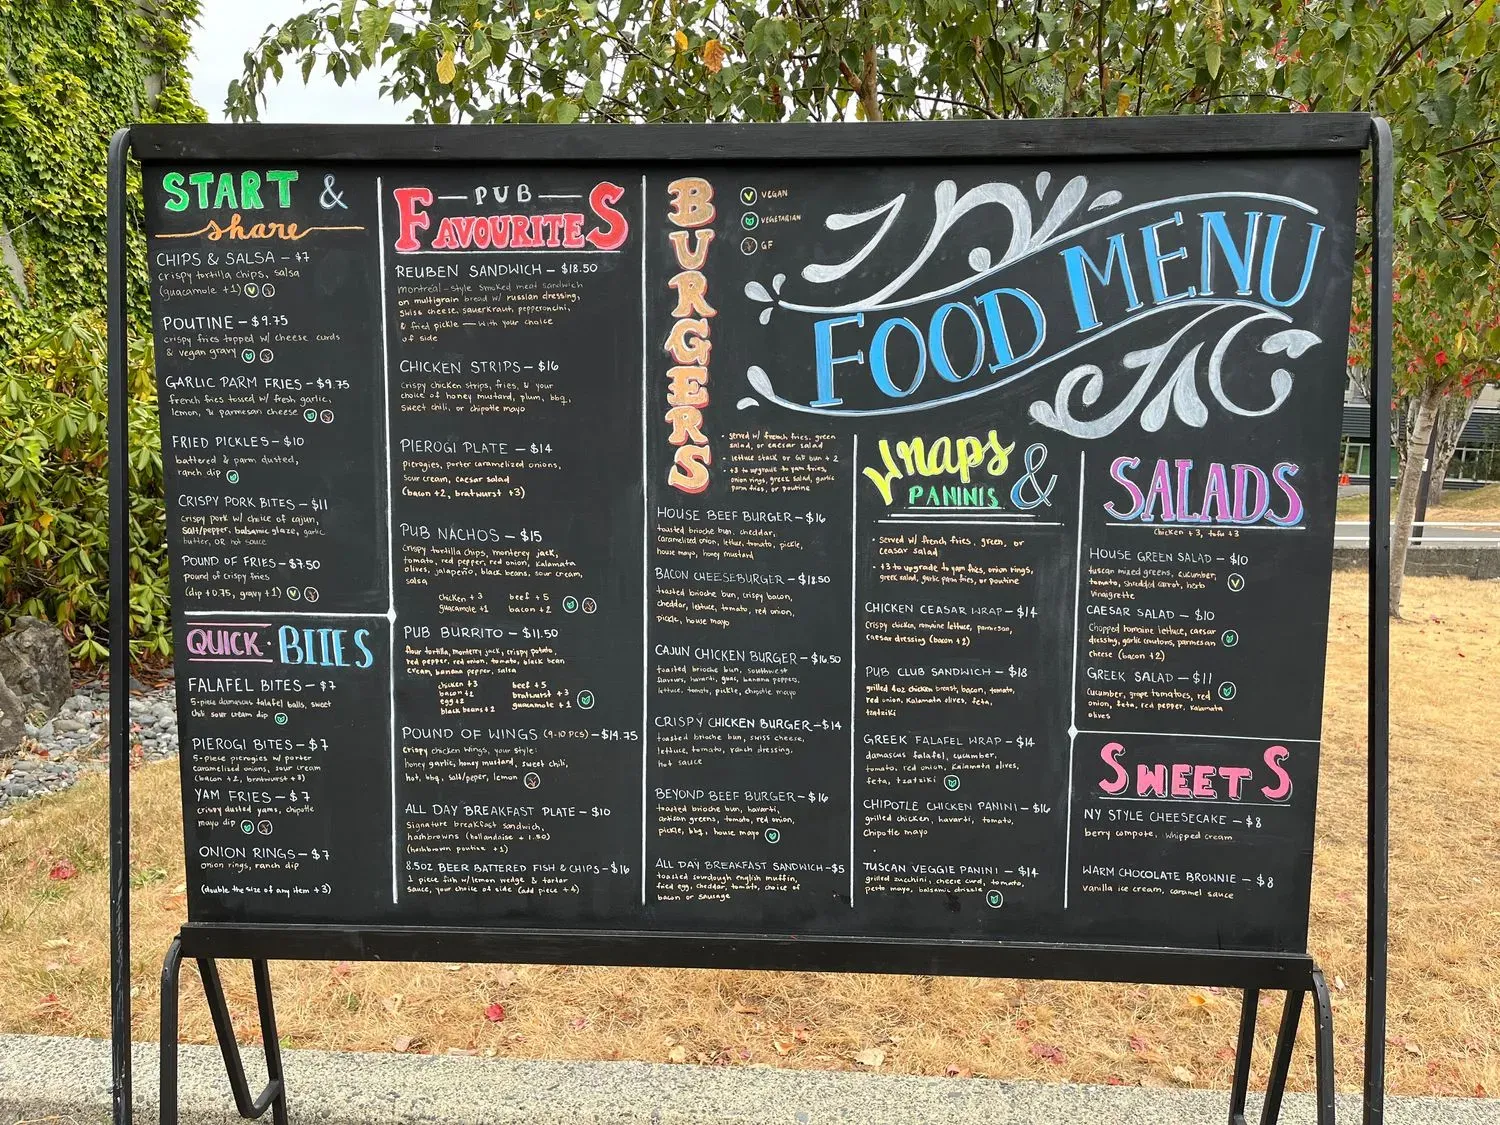 START &
share
CHIPS & SALSA - $7
crispy tortilla chips, salsa
(guacamole +1) V
POUTINE - $9.75
crispy fries topped w/ cheese curds
& vegan gravy
GARLIC PARM FRIES - $9.75
french fries tossed w/ fresh garlic,
lemon, & parmesan cheese
FRIED PICKLES - $10
battered & parm dusted,
ranch dip
CRISPY PORK BITES - $11
crispy pork w/ choice of cajun,
salt/pepper, balsamic glaze, garlic
butter, OR hot sauce
POUND OF FRIES - $7.50
pound of crispy fries
(dip +0.75, gravy +1) V
QUICK · BITES
FALAFEL BITES - $7
5-piece damascus falafel balls, sweet
chili sour cream dip
PIEROGI BITES - $7
5-piece pierogies w/ porter
caramelized onions, sour cream
(bacon +2, bratwurst +3)
YAM FRIES - $7
crispy dusted yams, chipotle
mayo dip
ONION RINGS - $7
onion rings, ranch dip
(double the size of any item +3)
PUB
FAVOURITES
REUBEN SANDWICH - $18.50
montréal-style smoked meat sandwich
on multigrain bread w/ russian dressing,
swiss cheese, sauerkraut, pepperoncini,
& fried pickle - with your choice
of side
CHICKEN STRIPS - $16
Crispy chicken strips, fries, & your
choice of honey mustard, plum, bbq,
sweet chili, or chipotle mayo
PIEROGI PLATE - $14
pierogies, porter caramelized onions,
sour cream, caesar salad
(bacon +2, bratwurst +3)
PUB NACHOS - $15
Crispy tortilla chips, monterey jack,
tomato, red pepper, red onion, kalamata
olives, jalapeño, black beans, sour cream,
salsa
chicken +3 beef +5
guacamole +1 bacon +2
PUB BURRITO - $11.50
flour tortilla, monterey jack, crispy potato,
red pepper, red onion, tomato, black bean
cream, banana pepper, salsa
chicken +3 beef +5
bacon +2 bratwurst +3
egg +2 guacamole +1
black beans +2
POUND OF WINGS (9-10 PCS) - $19.75
Crispy chicken wings, your style:
honey garlic, honey mustard, sweet chili,
hot, bbq, salt/pepper, lemon
ALL DAY BREAKFAST PLATE - $10
Signature breakfast sandwich,
hashbrowns (hollandaise +1.50)
(hashbrown poutine +1)
8.5OZ BEER BATTERED FISH & CHIPS - $16
1 piece fish w/lemon wedge & tartar
sauce, your choice of side (add piece +4)
BURGERS
V VEGAN
VEGETARIAN
GF
FOOD MENU
• served w/ french fries, green
salad, or caesar salad
• lettuce stack or GF bun +2
• +3 to upgrade to yam fries,
onion rings, greek salad, garlic
parm fries, or poutine
HOUSE BEEF BURGER - $16
toasted brioche bun, cheddar,
caramelized onion, lettuce, tomato, pickle,
house mayo, honey mustard
BACON CHEESEBURGER - $18.50
toasted brioche bun, crispy bacon,
cheddar, lettuce, tomato, red onion,
pickle, house mayo
CAJUN CHICKEN BURGER - $16.50
toasted brioche bun, southwest
flavours, havarti, guac, banana peppers,
lettuce, tomato, pickle, chipotle mayo
CRISPY CHICKEN BURGER - $14
toasted brioche bun, swiss cheese,
lettuce, tomato, ranch dressing,
hot sauce
BEYOND BEEF BURGER - $16
toasted brioche bun, havarti,
artisan greens, tomato, red onion,
pickle, bbq, house mayo
ALL DAY BREAKFAST SANDWICH - $5
toasted sourdough english muffin,
fried egg, cheddar, tomato, choice of
bacon or sausage
Wraps &
PANINIS
• served w/ french fries, green, or
ceasar salad
• +3 to upgrade to yam fries, onion rings,
greek salad, garlic parm fries, or poutine
CHICKEN CEASAR WRAP - $14
Crispy chicken, romaine lettuce, parmesan,
caesar dressing (bacon +2)
PUB CLUB SANDWICH - $18
grilled 4oz chicken breast, bacon, tomato,
red onion, kalamata olives, feta,
tzatziki
GREEK FALAFEL WRAP - $14
damascus falafel, cucumber,
tomato, red onion, kalamata olives,
feta, tzatziki
CHIPOTLE CHICKEN PANINI - $16
grilled chicken, havarti, tomato,
chipotle mayo
TUSCAN VEGGIE PANINI - $14
grilled zucchini, cheese curd, tomato,
pesto mayo, balsamic drizzle
SALADS
Chicken +3, tofu +3
HOUSE GREEN SALAD - $10
tuscan mixed greens, cucumber,
tomato, shredded carrot, herb
vinaigrette V
CAESAR SALAD - $10
Chopped romaine lettuce, caesar
dressing, garlic croutons, parmesan
cheese (bacon +2)
GREEK SALAD - $11
Cucumber, grape tomatoes, red
onion, feta, red pepper, kalamata
olives
SWEETS
NY STYLE CHEESECAKE - $8
berry compote, whipped cream
WARM CHOCOLATE BROWNIE - $8
vanilla ice cream, caramel sauce